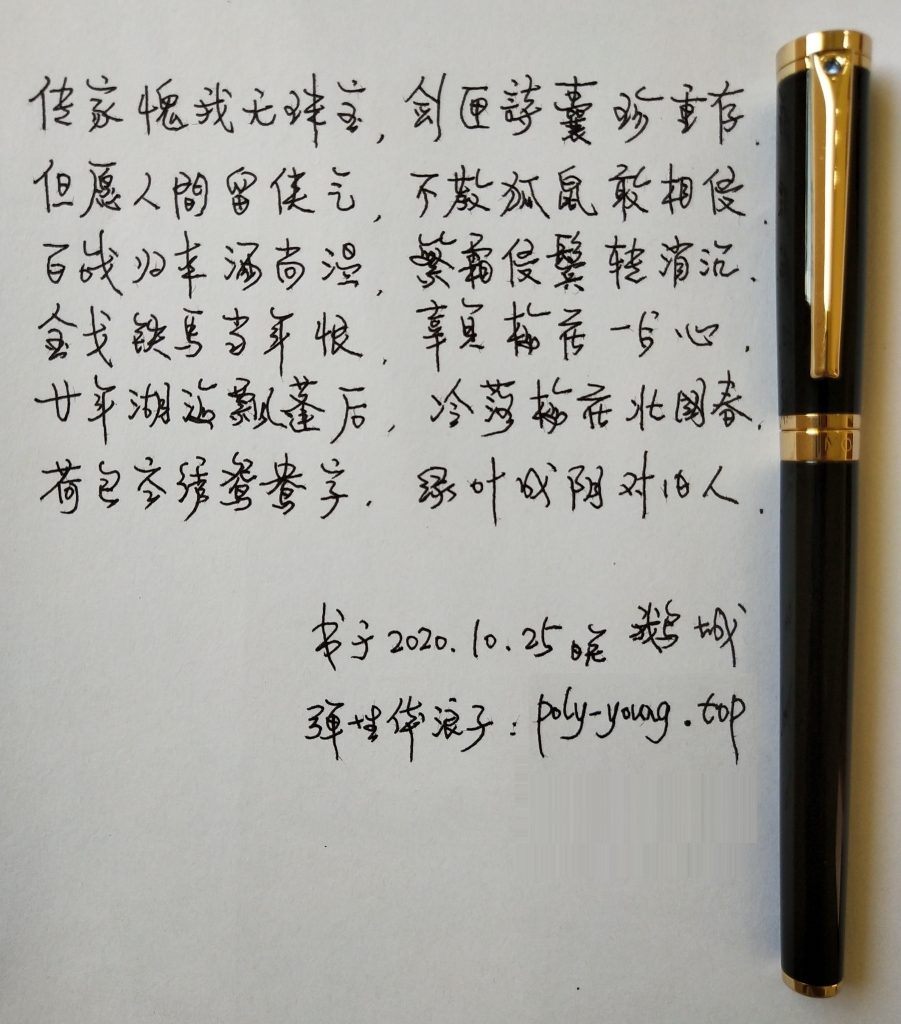 传家愧我无珠玉，剑匣诗囊珍重存．
但愿人間留侠气，不教狐鼠敢相侵．
百战归来酒尚温，繁霜侵鬓转消沉．
金戈铁马当年恨，辜负梅花一片心．
廿年湖海飘蓬后，冷落梅花北国春．
荷包空绣鸳鸯字．绿叶成阴对旧人．
书于2020.10.25晚 鹅城
弹性体浪子：poly-young.top